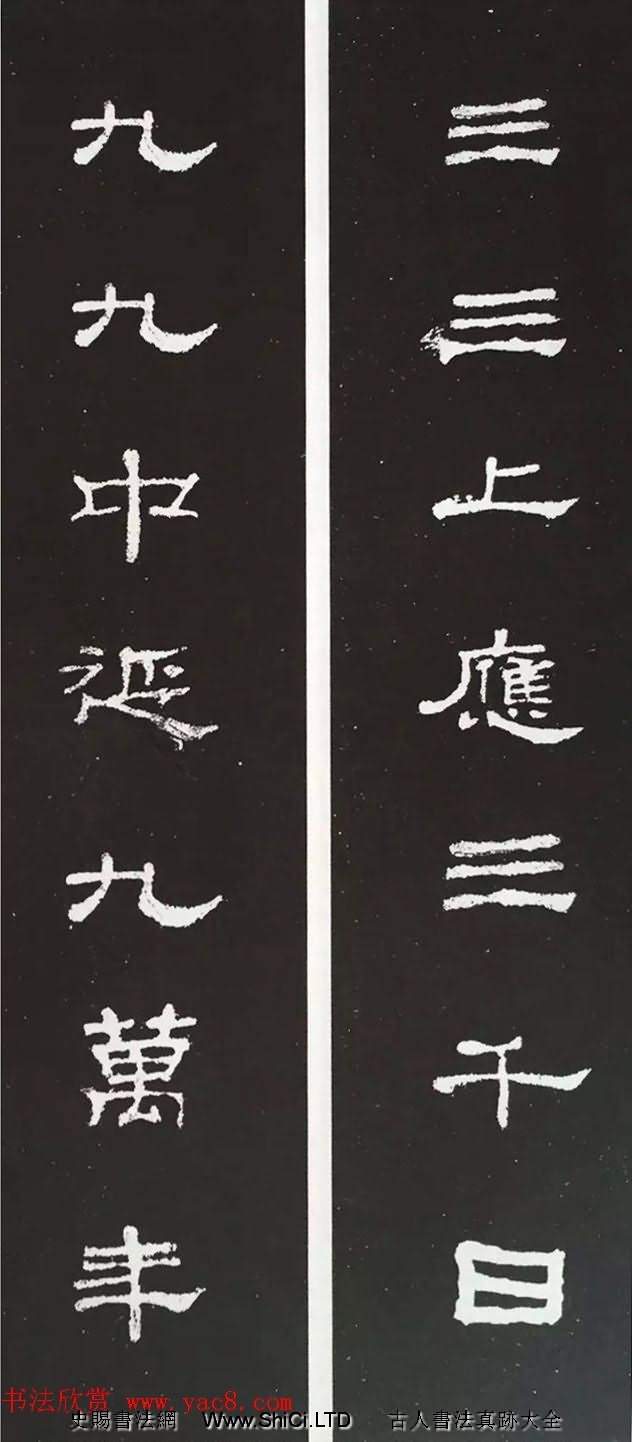 三三上應三千日
九九中延九萬年
书法欣赏 www.yac8.com
史賜書法網 WWW.ShiCi.LTD 古人書法真跡大全